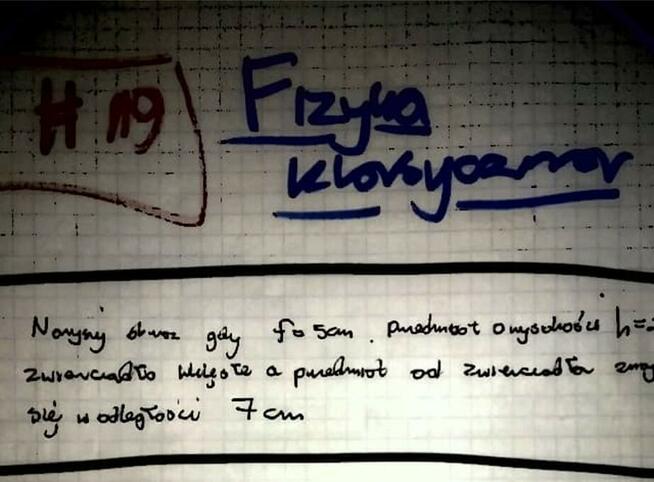 # 19
Fizyka
klasyczna
Narysuj obraz gdy f = 5cm. przedmiot o wysokości h=
zwierciadło wklęsłe a przedmiot od zwierciadła
się w odległości 7 cm